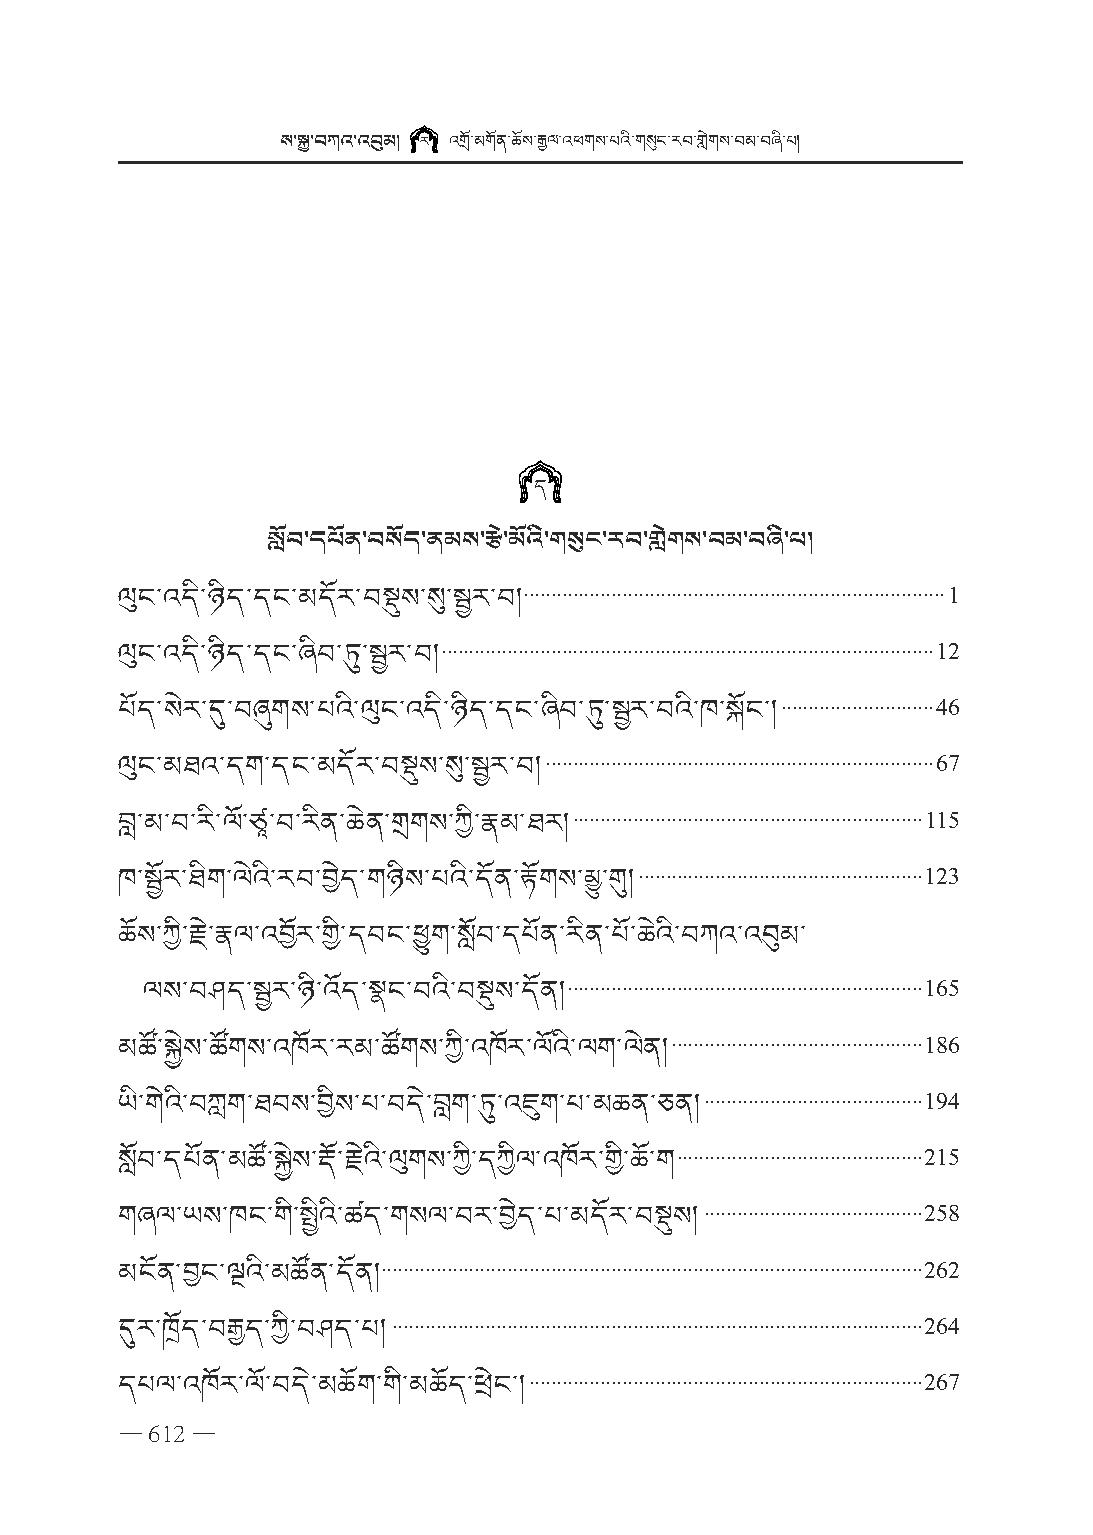 ས་སྐྱ་བཀའ་འབུམ། ར འགྲོ་མགོན་ཆོས་རྒྱལ་འཕགས་པའི་གསུང་རབ་གླེགས་བམ་བཞི་པ།
ད
སློབ་དཔོན་བསོད་ནམས་རྩེ་མོའི་གསུང་རབ་གླེགས་བམ་བཞི་པ།
ལུང་འདི་ཉིད་དང་མདོར་བསྡུས་སུ་སྦྱར་བ། 1
ལུང་འདི་ཉིད་དང་ཞིབ་ཏུ་སྦྱར་བ། 12
པོད་སེར་དུ་བཞུགས་པའི་ལུང་འདི་ཉིད་དང་ཞིབ་ཏུ་སྦྱར་བའི་ཁ་སྐོང་། 46
ལུང་མཐའ་དག་དང་མདོར་བསྡུས་སུ་སྦྱར་བ། 67
བླ་མ་བ་རི་ལོ་ཙཱ་བ་རིན་ཆེན་གྲགས་ཀྱི་རྣམ་ཐར། 115
ཁ་སྦྱོར་ཐིག་ལེའི་རབ་བྱེད་གཉིས་པའི་དོན་རྟོགས་མྱུ་གུ། 123
ཆོས་ཀྱི་རྗེ་རྣལ་འབྱོར་གྱི་དབང་ཕྱུག་སློབ་དཔོན་རིན་པོ་ཆེའི་བཀའ་འབུམ་
ལས་བཤད་སྦྱར་ཉི་འོད་སྣང་བའི་བསྡུས་དོན། 165
མཚོ་སྐྱེས་ཚོགས་འཁོར་རམ་ཚོགས་ཀྱི་འཁོར་ལོའི་ལག་ལེན། 186
ཡི་གེའི་བཀླག་ཐབས་བྱིས་པ་བདེ་བླག་ཏུ་འཇུག་པ་མཆན་ཅན། 194
སློབ་དཔོན་མཚོ་སྐྱེས་རྡོ་རྗེའི་ལུགས་ཀྱི་དཀྱིལ་འཁོར་གྱི་ཆོ་ག 215
གཞལ་ཡས་ཁང་གི་སྤྱིའི་ཚད་གསལ་བར་བྱེད་པ་མདོར་བསྡུས། 258
མངོན་བྱང་ལྔའི་མཚོན་དོན། 262
དུར་ཁྲོད་བརྒྱད་ཀྱི་བཤད་པ། 264
དཔལ་འཁོར་ལོ་བདེ་མཆོག་གི་མཆོད་ཕྲེང་། 267
— 612 —